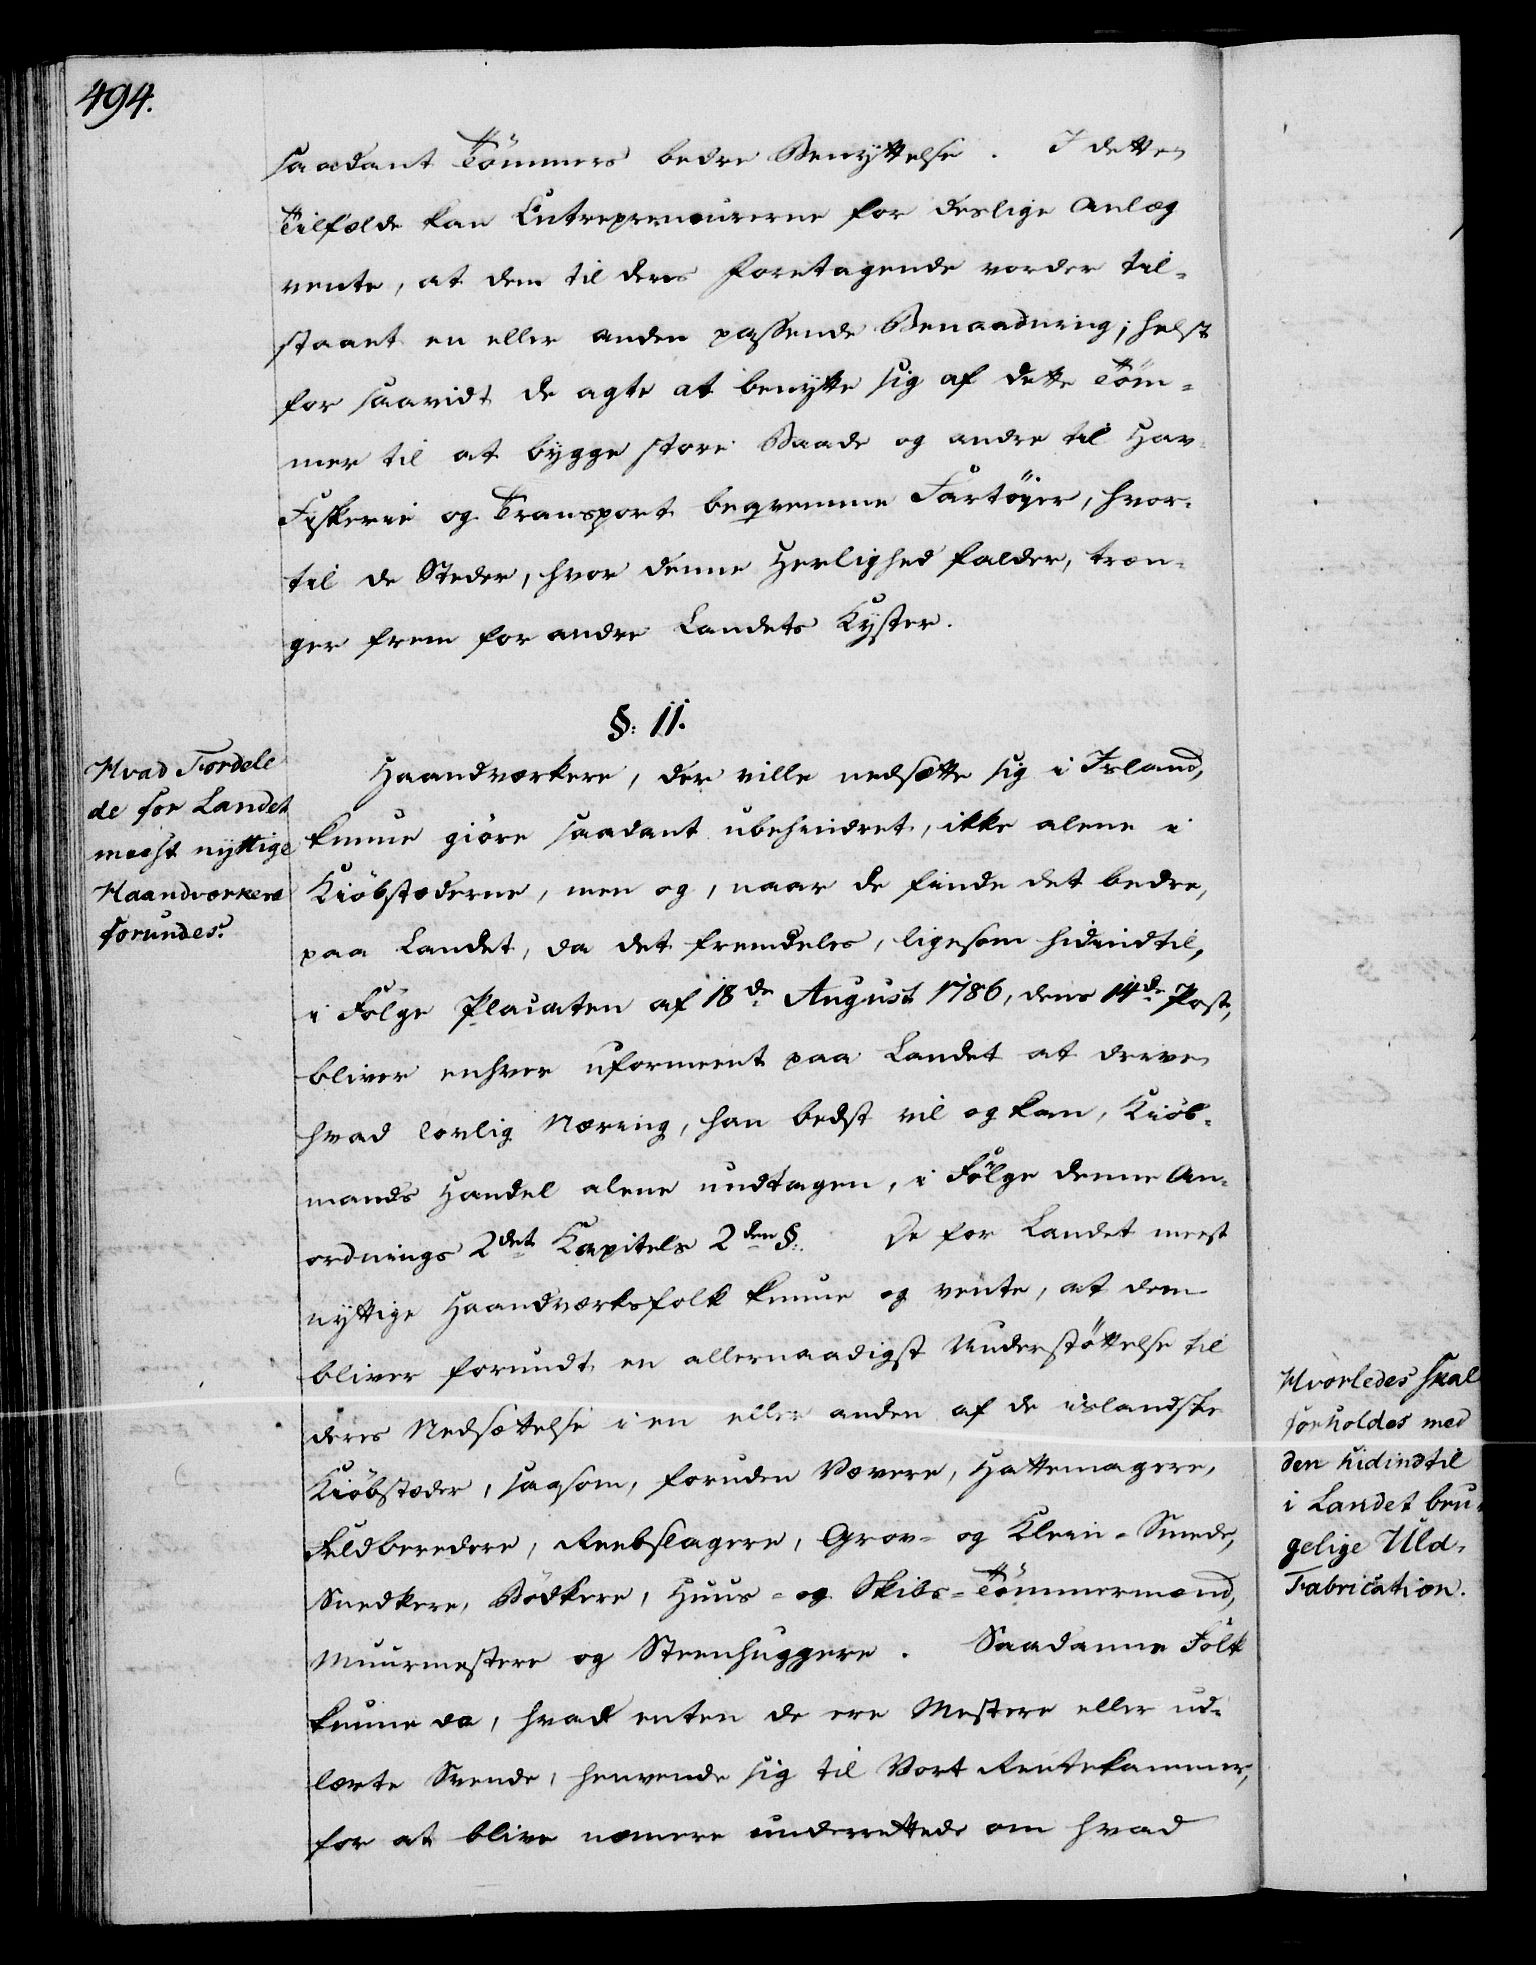 494.
saadant Tömmers bedre Benyttelse. I dette
Tilfælde kan Entrepreneurerne for deslige Anlæg
vente, at dem til deres Foretagende vorder til-
staaet en eller anden passende Benaadning; helst
for saavidt de agte at benytte sig af dette Töm-
mer til at bygge store Baade og andre til Hav-
Fiskerie og Transport beqvemme Fartöjer, hvor-
til de Steder, hvor denne Herlighed falder, træn-
ger frem for andre Landets Kyster.
§: 11.
Hvad Fordele
de for Landet
meest nyttige
Haandværkere
forundes.
Haandværkere, der ville nedsætte sig i Island,
kunne giöre saadant ubehindret, ikke alene i
Kiöbstæderne, men og, naar de finde det bedre,
paa Landet, da det fremdeles, ligesom hidindtil,
i Fölge Placaten af 18de August 1786, dens 14de Post,
bliver enhver uformeent paa Landet at drive
hvad lovlig Næring, han bedst vil og kan, Kiöb-
mands Handel alene undtagen, i Fölge denne An-
ordnings 2det Kapitels 2den §. De for Landet meest
nyttige Haandværksfolk kunne og vente, at dem
bliver forundt en allernaadigst Understöttelse til
deres Nedsættelse i en eller anden af de islandske
Kiöbstæder, saasom, foruden Vævere, Hattemagere,
Feldberedere, Reebslagere, Grov- og Klein-Smede,
Snedkere, Bödkere, Huus- og Skibs-Tömmermænd,
Muurmestere og Steenhuggere. Saadanne Folk
kunne da, hvad enten de ere Mestere eller ud-
lærte Svende, henvende sig til Vort Rentekammer,
for at blive nærmere underrettede om hvad
Hvorledes skal
forholdes med
den hidindtil
i Landet bru-
gelige Uld-
Fabrication.